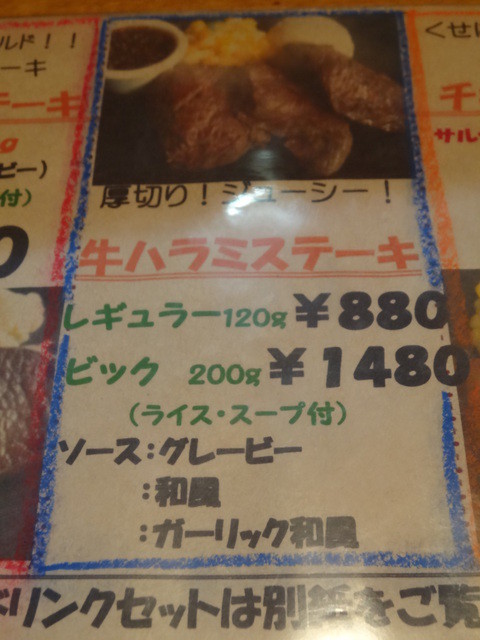 ルド！！
ーキ
ーキ
ビー）
付）
0
厚切り！ジューシー！
牛ハラミステーキ
レギュラー120g ￥880
ビック 200g ￥1480
（ライス・スープ付）
ソース：グレービー
：和風
：ガーリック和風
くせに
チ
サル
ドリンクセットは別紙をご覧